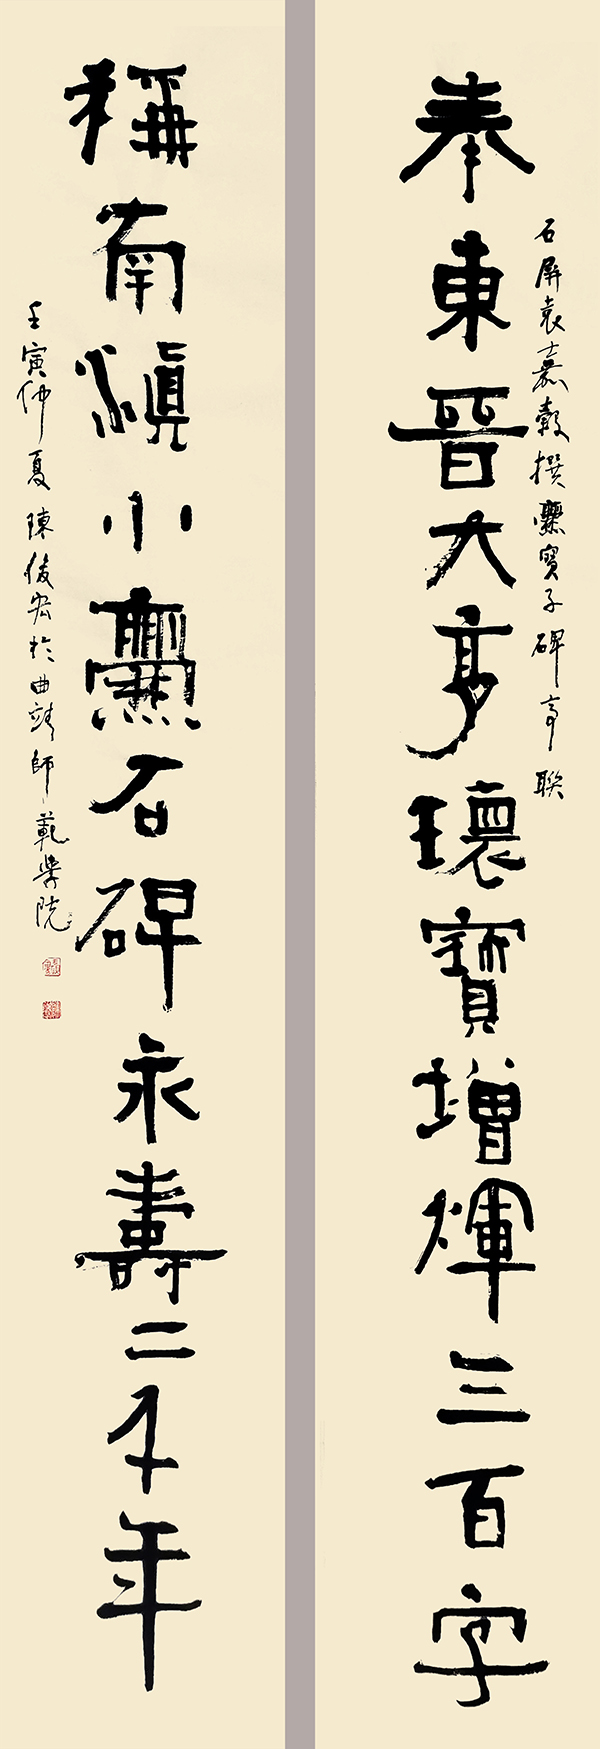 奉東晉大亨瓌寶增輝三百字
石屏袁嘉穀撰爨寶子碑亭聯
稱南滇小爨石碑永壽二千年
壬寅仲夏陳俊宏於曲靖師範學院